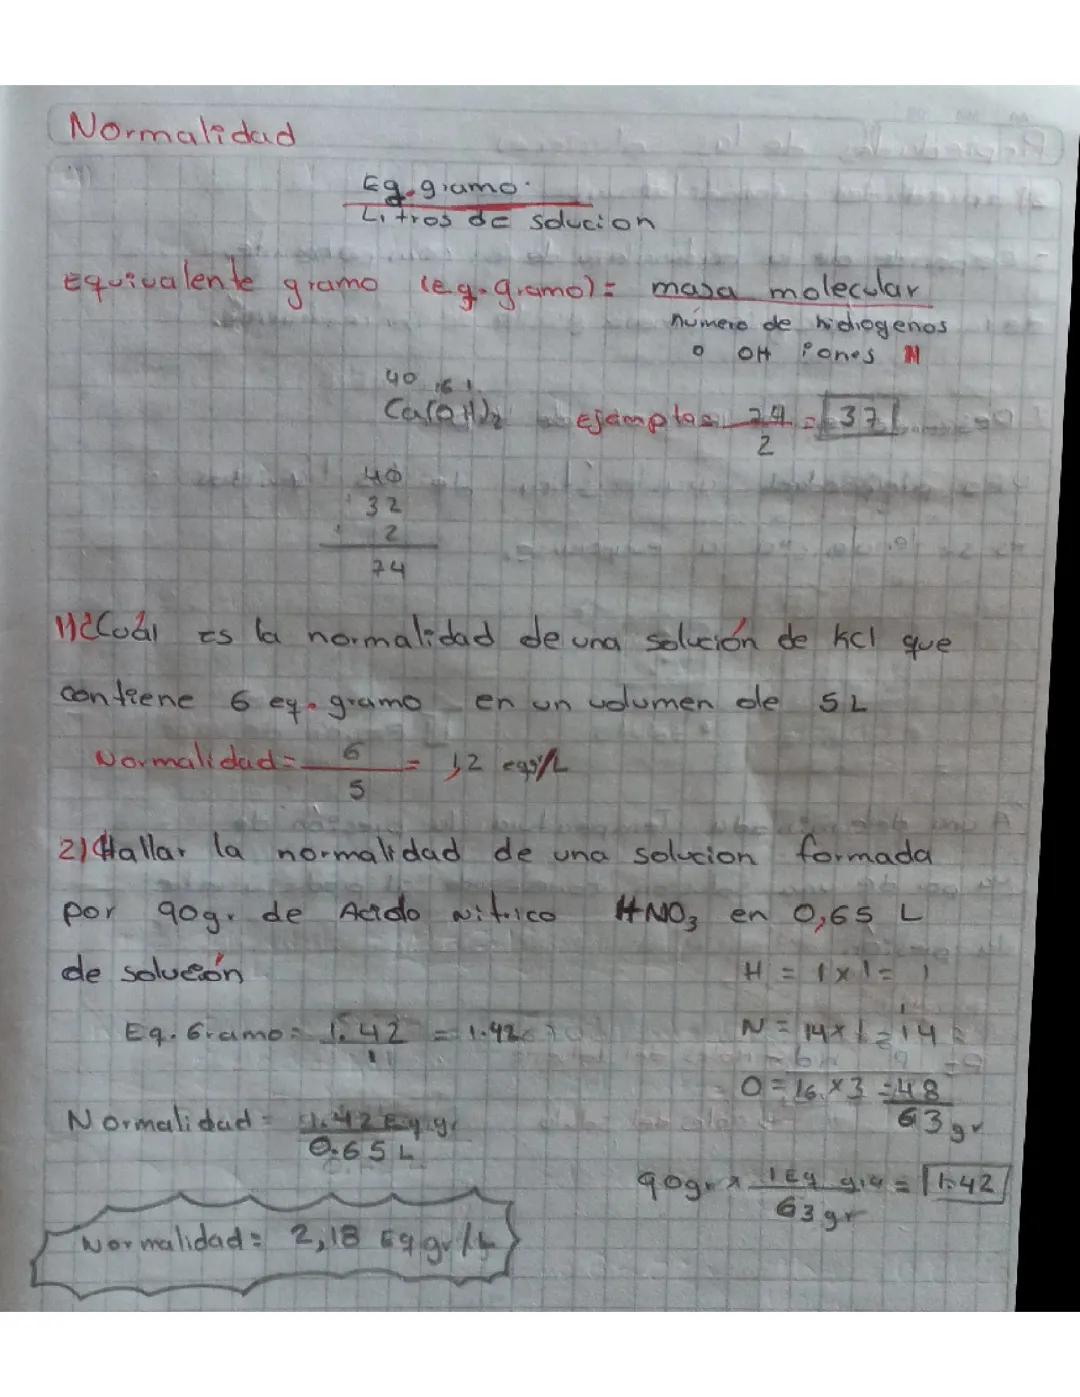 Normalidad
Eq.gramo.
Litros de solucion
Equivalente gramo (e.q.gramo) = masa molecular
número de hidrogenos
o OH iones N
40 16 1
Ca(OH)2 ejemplos 74/2 = 37
40
32
2
74
1) ¿Cuál es la normalidad de una solución de KCl que
contiene 6 eq.gramo en un volumen de 5 L
Normalidad = 6/5 = 1,2 eqgr/L
2) Hallar la normalidad de una solucion formada
por 90gr de Acido Nitrico HNO3 en 0,65 L
de solución
H = 1 x 1 = 1
Eq. Gramo = 1.42/1 = 1.42
N = 14 x 1 = 14
O = 16 x 3 = 48
63gr
Normalidad = 1.42 Eq.gr
0.65 L
90gr x 1 Eq gra/63gr = 1.42
Normalidad = 2,18 Eqgr/L